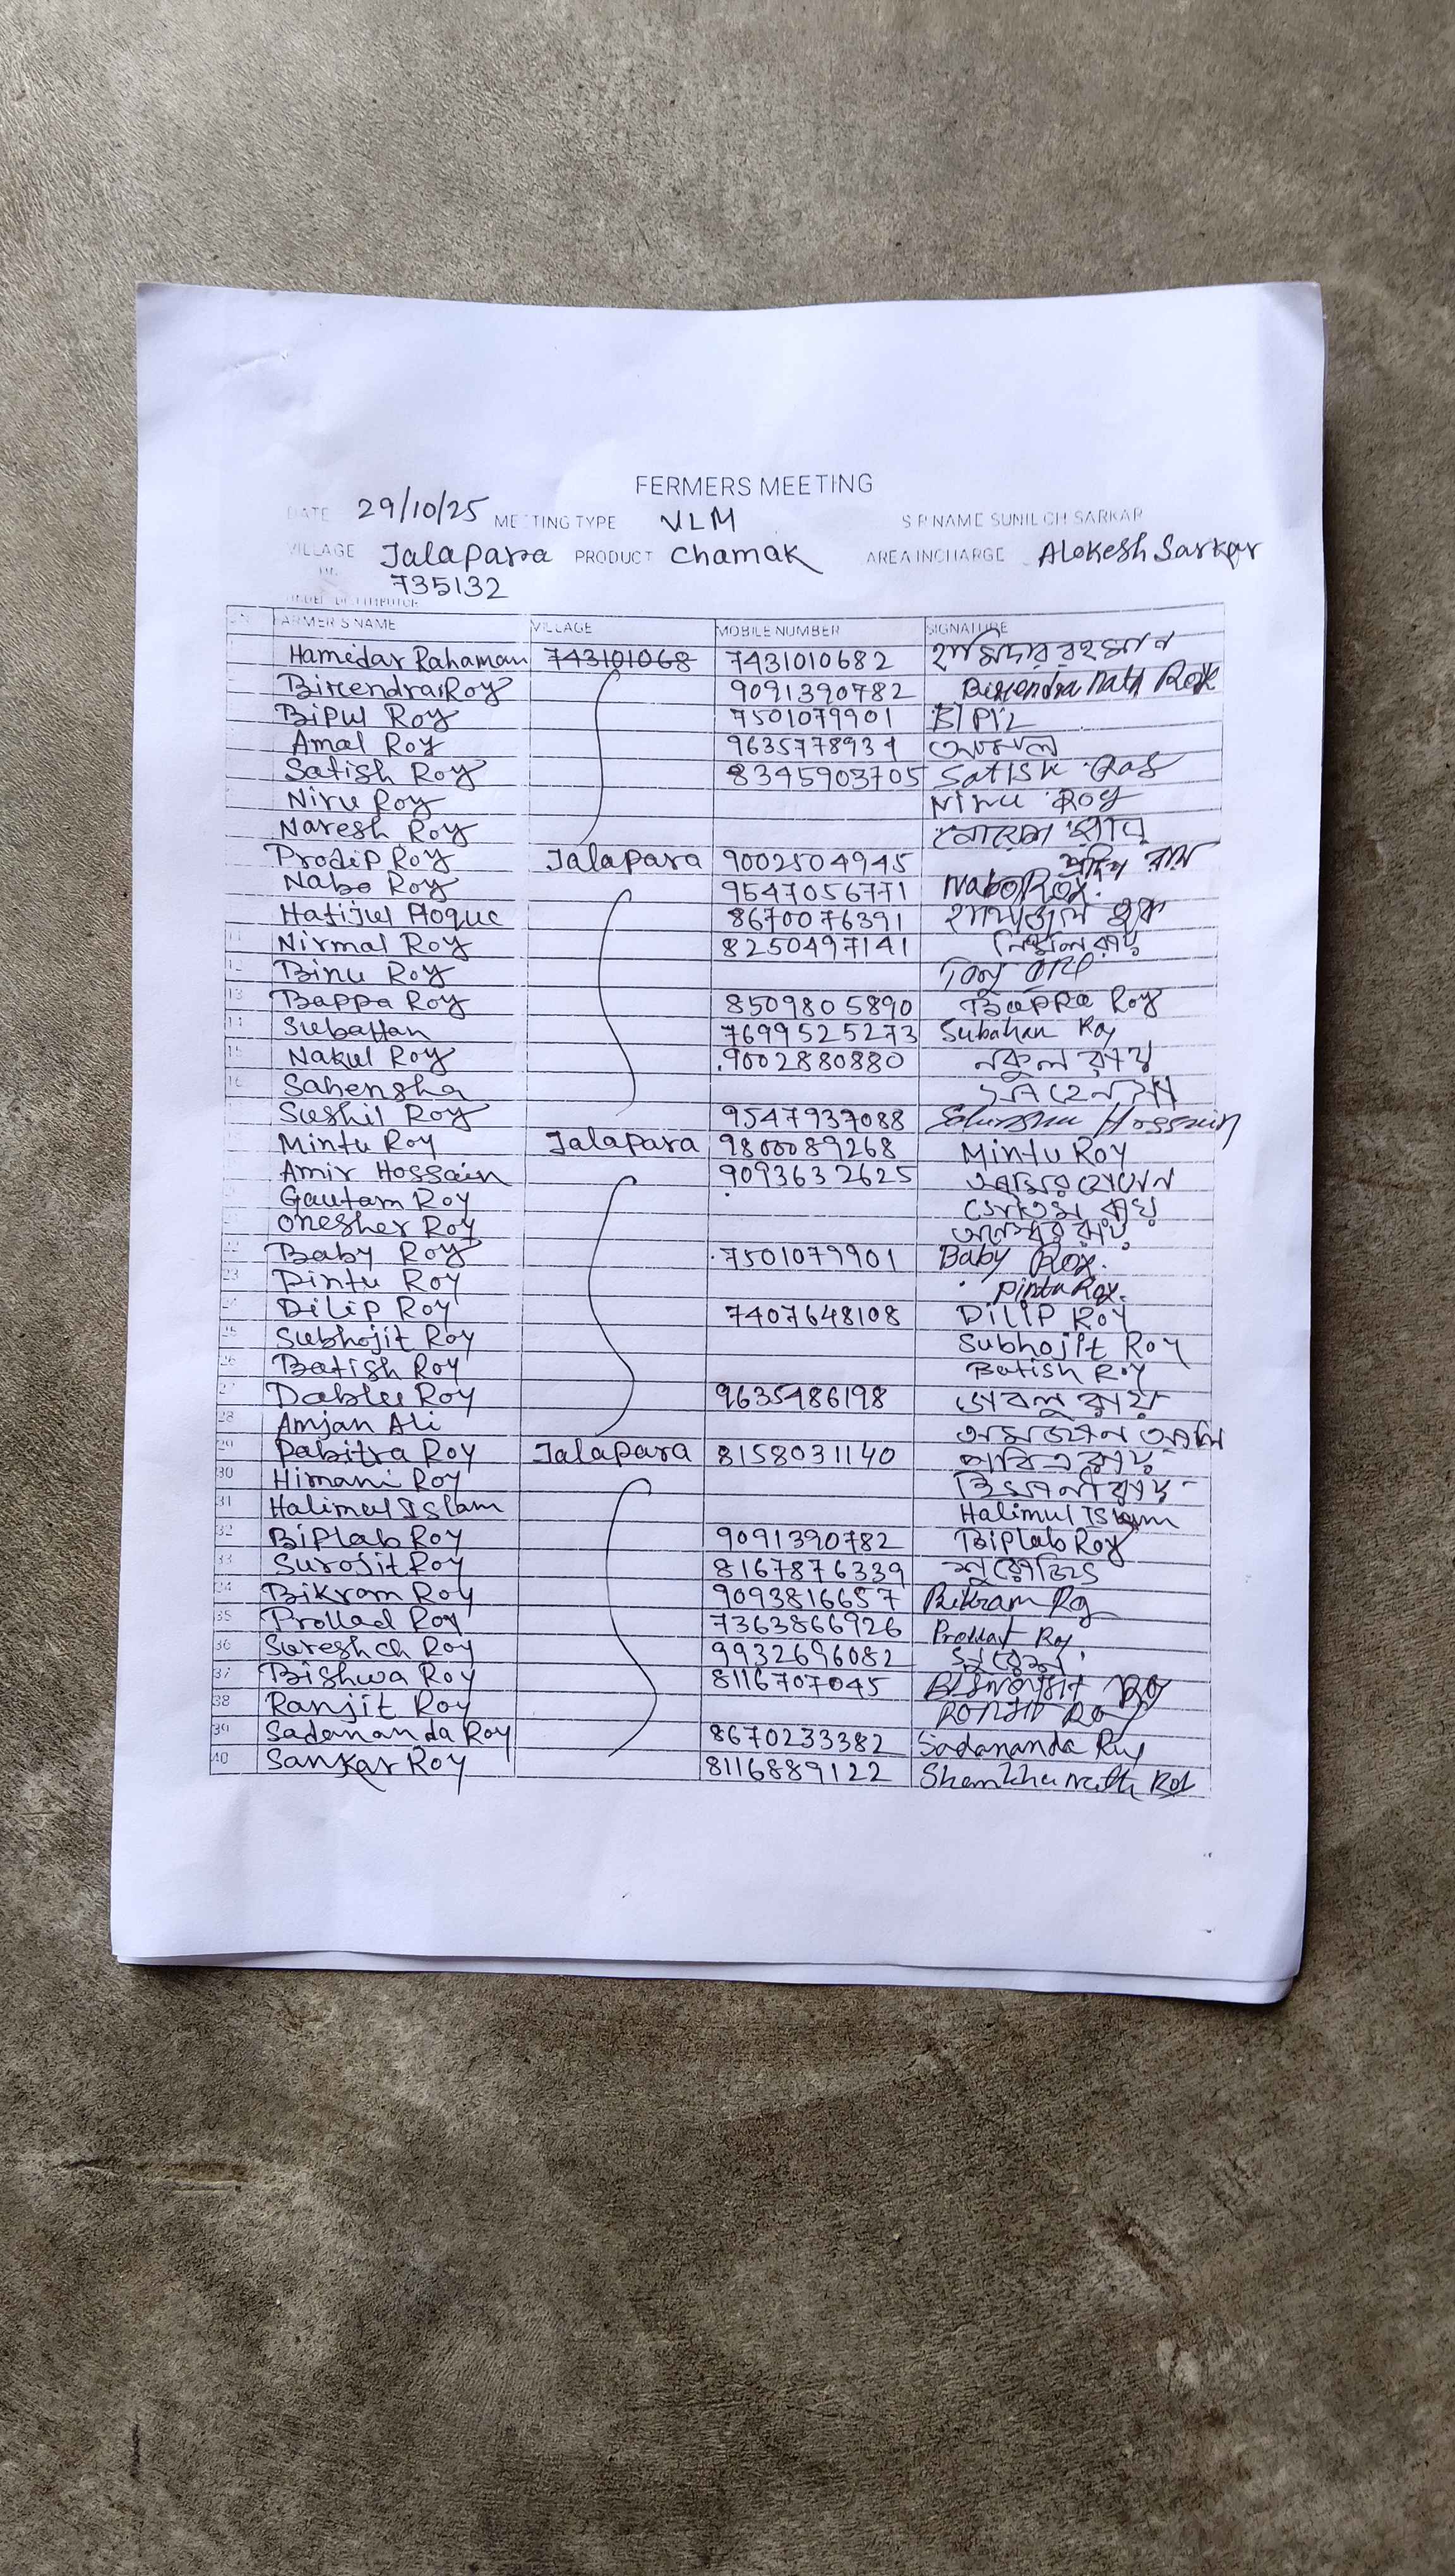 FERMERS MEETING
DATE 29/10/25 MEETING TYPE VLM S R NAME SUNIL CH SARKAR
VILLAGE Jalapara PRODUCT Chamak AREA INCHARGE Alokesh Sarkar
735132
FARMER'S NAME VILLAGE MOBILE NUMBER SIGNATURE
Hamedar Rahaman 743101068 7431010682 হামিদার রহমান
Birendra Roy 9091390782 Birendra nath Roy
Bipul Roy 7501079901 BIPYL
Amal Roy 9635778934 অমল
Satish Roy 8345903705 Satish Roy
Niru Roy Niru Roy
Naresh Roy
Prodip Roy Jalapara 9002504945 প্রদিপ রায়
Nabo Roy 9547056771 Nabo Roy.
Hafijul Hoque 8670076391 হাফিজুল হক
11 Nirmal Roy 8250497141 নির্মল রায়
12 Binu Roy
13 Bappa Roy 8509805890 Bappa Roy
14 Subahan 7699525273 Subahan Roy
15 Nakul Roy 9002880880 নকুল রায়
16 Sahensha
Sushil Roy 9547937088 Hossain
18 Mintu Roy Jalapara 9800089268 Mintu Roy
Amir Hossain 9093632625 আমির হোসেন
Gautam Roy গৌতম রায়
Onesher Roy রায়
22 Baby Roy 7501079901 Baby Roy.
23 Pintu Roy Pintu Roy.
24 Dilip Roy 7407648108 DiliP Roy
25 Subhojit Roy Subhojit Roy
26 Batish Roy Batish Roy
27 Dablu Roy 9635486198 ডাবলু রায়
28 Amjan Ali আমজান আলি
29 Pabitra Roy Jalapara 8158031140 পবিত্র রায়
30 Himani Roy হিমানী রায়
31 Halimul Islam Halimul Islam
32 Biplab Roy 9091390782 Biplab Roy
33 Surojit Roy 8167876339 সুরোজিৎ
34 Bikram Roy 9093816657 Bikram Roy
35 Prollad Roy 7363866926 Prollat Roy
36 Suresh ch Roy 9932696082 সুরেশ
37 Bishwa Roy 8116707045 Biswojit Roy
38 Ranjit Roy RONJIT ROY
39 Sadananda Roy 8670233382 Sadananda Roy
40 Sankar Roy 8116889122